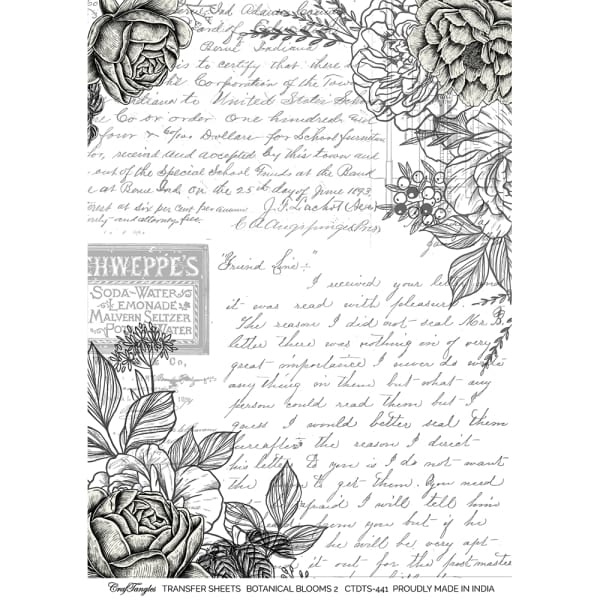 Ind Adams County
and of
Berne Indiana
is to certify that there
The Corporation of the Town
Indiana to United States School
Co or order One hundred
four & 4/100 Dollars for School furniture
, received and accepted by this town and
out of the Special School Funds at the Bank
at Berne Ind. on the 25th day of June 1893.
at six per cent per annum
and attorney fees.
HWEPPE'S
SODA-WATER
LEMONADE
MALVERN SELTZER
WATER
& Co,
"Friend Line":
I received your
it was read with pleasure.
The reason I did not seal Mr. B.
letter there was nothing in of very
great importance I never do write
any thing in them but what any
person could read them but I
guess I would better seal them
hereafter the reason I direct
his letter to you is I do not want
the to get them. You need
afraid I will tell him
from you but if he
he will be very apt
it out for the postmaster
CrafTangles TRANSFER SHEETS BOTANICAL BLOOMS 2 CTDTS-441 PROUDLY MADE IN INDIA